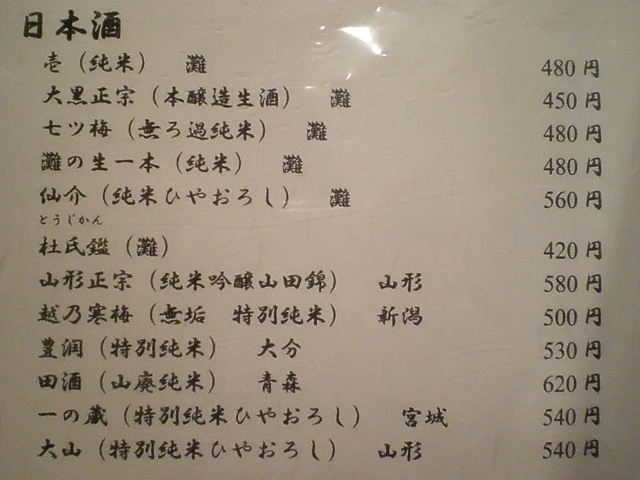 日本酒
壱（純米） 灘 480円
大黒正宗（本醸造生酒） 灘 450円
七ツ梅（無ろ過純米） 灘 480円
灘の生一本（純米） 灘 480円
仙介（純米ひやおろし） 灘 560円
とうじかん
杜氏鑑（灘） 420円
山形正宗（純米吟醸山田錦） 山形 580円
越乃寒梅（無垢 特別純米） 新潟 500円
豊潤（特別純米） 大分 530円
田酒（山廃純米） 青森 620円
一の蔵（特別純米ひやおろし） 宮城 540円
大山（特別純米ひやおろし） 山形 540円